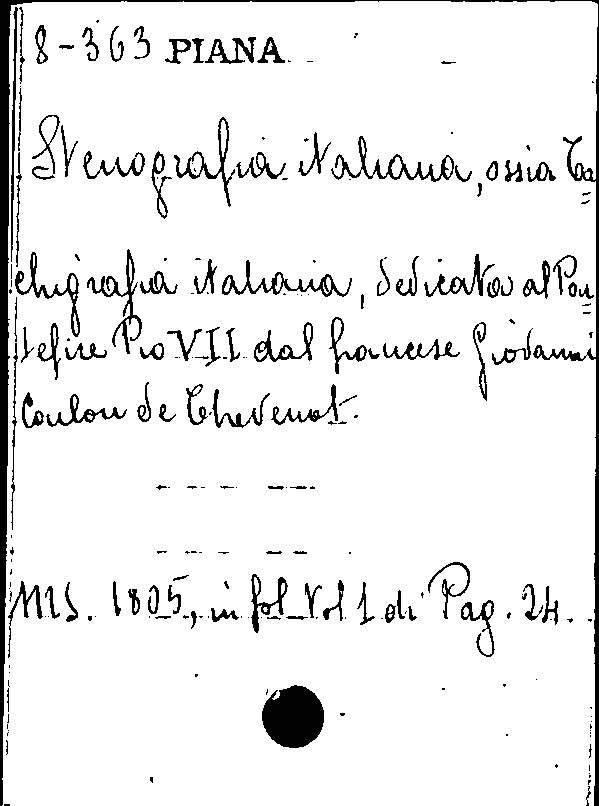 8-363 PIANA
Stenografia italiana, ossia Ta=
chigrafia italiana, dedicata al Pon=
tefice Pio VII dal francese Giovanni
Coulon de Thevenot.
MS. 1805, in fol. Vol 1 di Pag. 24.